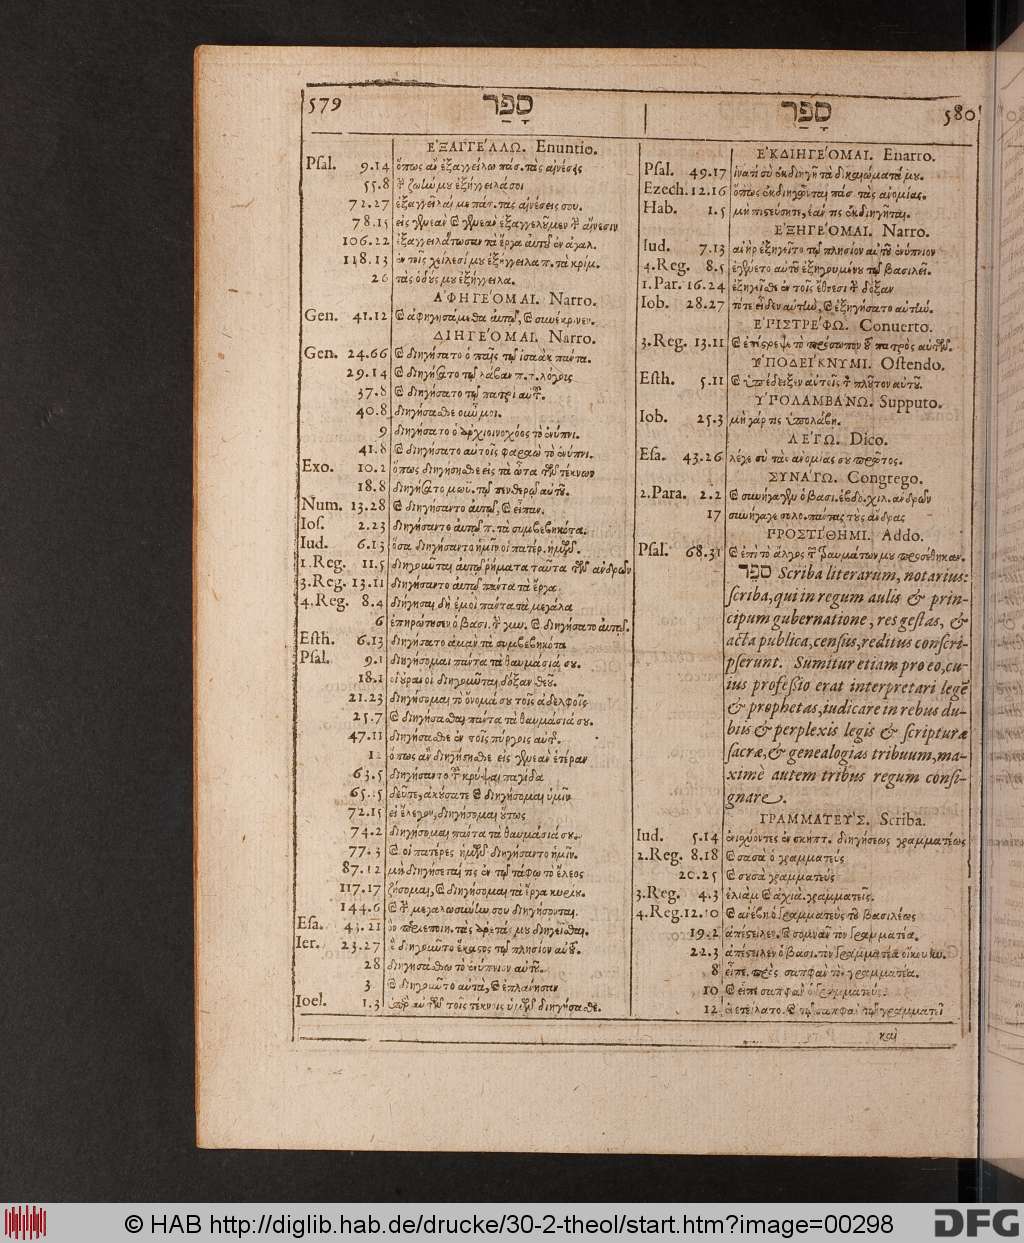 579
סָפַר
סָפַר
580
ἘΞΑΓΓΈΛΛΩ. Enuntio.
Psal. 9.14 ὅπως ἂν ἐξαγγείλω πάσ. τὰς αἰνέσεις
55.8 τ ζωίω μου ἐξήγγειλά σοι
72.27 ἐξαγγεῖλαί με πάσ. τὰς αἰνέσεις σου.
78.15 εἰς γενεὰν καὶ γενεὰν ἐξαγγελοῦμεν τ αἴνεσιν
106.22 ἐξαγγειλάτωσαν τὰ ἔργα αὐτοῦ ἐν ἀγαλ.
118.13 ἐν τοῖς χείλεσί μου ἐξήγγειλα π. τὰ κρίμ.
26 τὰς ὁδούς μου ἐξήγγειλα.
ἈΦΗΓΈΟΜΑΙ. Narro.
Gen. 41.12 καὶ ἀφηγησάμεθα αὐτῷ, καὶ συνέκρινεν.
ΔΙΗΓΈΟΜΑΙ. Narro.
Gen. 24.66 καὶ διηγήσατο ὁ παῖς τῷ ἰσαὰκ πάντα.
29.14 καὶ διηγήσατο τῷ λάβαν π. τ. λόγοις
37.8 καὶ διηγήσατο τῷ πατρὶ αὐτ.
40.8 διηγήσασθε οὖν μοι.
9 διηγήσατο ὁ ἀρχιοινοχόος τὸ ἐνύπνι.
41.8 καὶ διηγήσατο αὐτοῖς φαραὼ τὸ ἐνύπνι.
Exo. 10.2 ὅπως διηγήσησθε εἰς τὰ ὦτα τῶν τέκνων
18.8 διηγήσατο μωϋ. τῷ πενθερῷ αὐτοῦ.
Num. 13.28 καὶ διηγήσαντο αὐτῷ, καὶ εἶπαν.
Ios. 2.23 διηγήσαντο αὐτῷ π. τὰ συμβεβηκότα.
Iud. 6.13 ὅσα διηγήσαντο ἡμῖν οἱ πατέρ. ἡμῶν.
1.Reg. 11.5 διηγοῦνται αὐτῷ ῥήματα ταῦτα τῶν ἀνδρῶν
3.Reg. 13.11 διηγήσαντο αὐτῷ πάντα τὰ ἔργα.
4.Reg. 8.4 διήγησαι δὴ ἐμοὶ πάντα τὰ μεγάλα
6 ἐπηρώτησεν ὁ βασι. τ γυν. καὶ διηγήσατο αὐτῷ.
Esth. 6.13 διηγήσατο ἀμὰν τὰ συμβεβηκότα
Psal. 9.1 διηγήσομαι πάντα τὰ θαυμάσιά σου.
18.1 οἱ οὐρανοὶ διηγοῦνται δόξαν θεοῦ.
21.23 διηγήσομαι τὸ ὄνομά σου τοῖς ἀδελφοῖς
25.7 καὶ διηγήσασθαι πάντα τὰ θαυμάσιά σου.
47.11 διηγήσασθε ἐν τοῖς πύργοις αὐτ.
12 ὅπως ἂν διηγήσησθε εἰς γενεὰν ἑτέραν
63.5 διηγήσαντο τ κρύψαι παγίδα
65.15 δεῦτε, ἀκούσατε καὶ διηγήσομαι ὑμῖν
72.15 εἰ ἔλεγον, διηγήσομαι οὕτως
74.2 διηγήσομαι πάντα τὰ θαυμάσιά σου.
77.3 καὶ οἱ πατέρες ἡμῶν διηγήσαντο ἡμῖν.
87.12 μὴ διηγήσεταί τις ἐν τῷ τάφῳ τὸ ἔλεος
117.17 ζήσομαι, καὶ διηγήσομαι τὰ ἔργα κυρίου.
144.6 καὶ τ μεγαλωσύνην σου διηγήσονται.
Esa. 43.21 ὃν περιεποιη. τὰς ἀρετάς μου διηγεῖσθαι.
Ier. 23.27 διηγοῦντο ἕκαστος τῷ πλησίον αὐτοῦ.
28 διηγησάσθω τὸ ἐνύπνιον αὐτοῦ.
3 καὶ διηγοῦντο αὐτὰ, καὶ ἐπλάνησαν
Ioel. 1.3 ὑπὲρ αὐτῶν τοῖς τέκνοις ὑμῶν διηγήσασθε.
ἘΚΔΙΗΓΈΟΜΑΙ. Enarro.
Psal. 49.17 ἱνατί σὺ ἐκδιηγῇ τὰ δικαιώματά μου.
Ezech. 12.16 ὅπως ἐκδιηγῶνται πάσ. τὰς ἀνομίας.
Hab. 1.5 μὴ πιστεύσητε, ἐάν τις ἐκδιηγῆται.
ἘΞΗΓΈΟΜΑΙ. Narro.
Iud. 7.13 ἀνὴρ ἐξηγεῖτο τῷ πλησίον αὐτοῦ ἐνύπνιον
4.Reg. 8.5 ἐγένετο αὐτοῦ ἐξηγουμένου τῷ βασιλεῖ.
1.Par. 16.24 ἐξηγεῖσθε ἐν τοῖς ἔθνεσι τ δόξαν
Iob. 28.27 τότε εἶδεν αὐτήν, καὶ ἐξηγήσατο αὐτήν.
ἘΠΙΣΤΡΈΦΩ. Conuerto.
3.Reg. 13.11 καὶ ἐπέστρεψε τὸ πρόσωπον τοῦ πατρὸς αὐτῶν.
ὙΠΟΔΕΊΚΝΥΜΙ. Ostendo.
Esth. 5.11 καὶ ὑπέδειξεν αὐτοῖς τ πλοῦτον αὐτοῦ.
ὙΠΟΛΑΜΒΆΝΩ. Supputo.
Iob. 25.3 μὴ γάρ τις ὑπολάβῃ.
ΛΈΓΩ. Dico.
Esa. 43.26 λέγε σὺ τὰς ἀνομίας σου πρῶτος.
ΣΥΝΆΓΩ. Congrego.
2.Para. 2.2 καὶ συνήγαγεν ὁ βασι. ἑβδο. χιλ. ἀνδρῶν
17 συνήγαγε σολο. πάντας τοὺς ἄνδρας
ΠΡΟΣΤΊΘΗΜΙ. Addo.
Psal. 68.31 καὶ ἐπὶ τὸ ἄλγος τ τραυμάτων μου προσέθηκαν.
סֹפֵר Scriba literarum, notarius:
scriba, qui in regum aulis & prin-
cipum gubernatione, res gestas, &
acta publica, census, reditus conscri-
pserunt. Sumitur etiam pro eo, cu-
ius professio erat interpretari legē
& prophetas, iudicare in rebus du-
biis & perplexis legis & scripturæ
sacræ, & genealogias tribuum, ma-
ximè autem tribus regum consi-
gnare.
ΓΡΑΜΜΑΤΕΎΣ. Scriba.
Iud. 5.14 ἐνισχύοντες ἐν σκήπτ. διηγήσεως γραμματέως
2.Reg. 8.18 καὶ σασὰ ὁ γραμματεύς
20.25 καὶ σουσὰ γραμματεύς
3.Reg. 4.3 ἐλιὰμ καὶ ἀχιὰ. γραμματεῖς.
4.Reg. 12.10 καὶ ἀνέβη ὁ γραμματεὺς τοῦ βασιλέως
19.2 ἀπέστειλεν. καὶ σομνᾶν τὸν γραμματέα.
22.3 ἀπέστειλεν ὁ βασι. τὸν γραμματέα οἴκου κυ.
8 εἶπε πρὸς σαπφὰν τὸν γραμματέα.
10 καὶ εἶπε σαπφὰν ὁ γραμματεύς.
12 ἐνετείλατο. καὶ τῷ σαπφὰν τῷ γραμματεῖ
καὶ
© HAB http://diglib.hab.de/drucke/30-2-theol/start.htm?image=00298
DFG